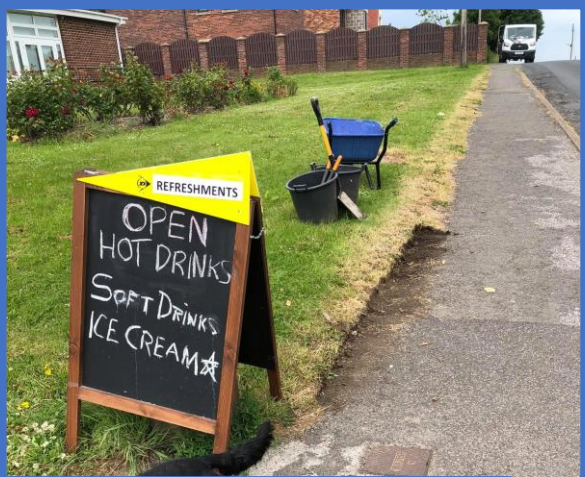 REFRESHMENTS
OPEN
HOT DRINKS
SOFT DRINKS
ICE CREAM